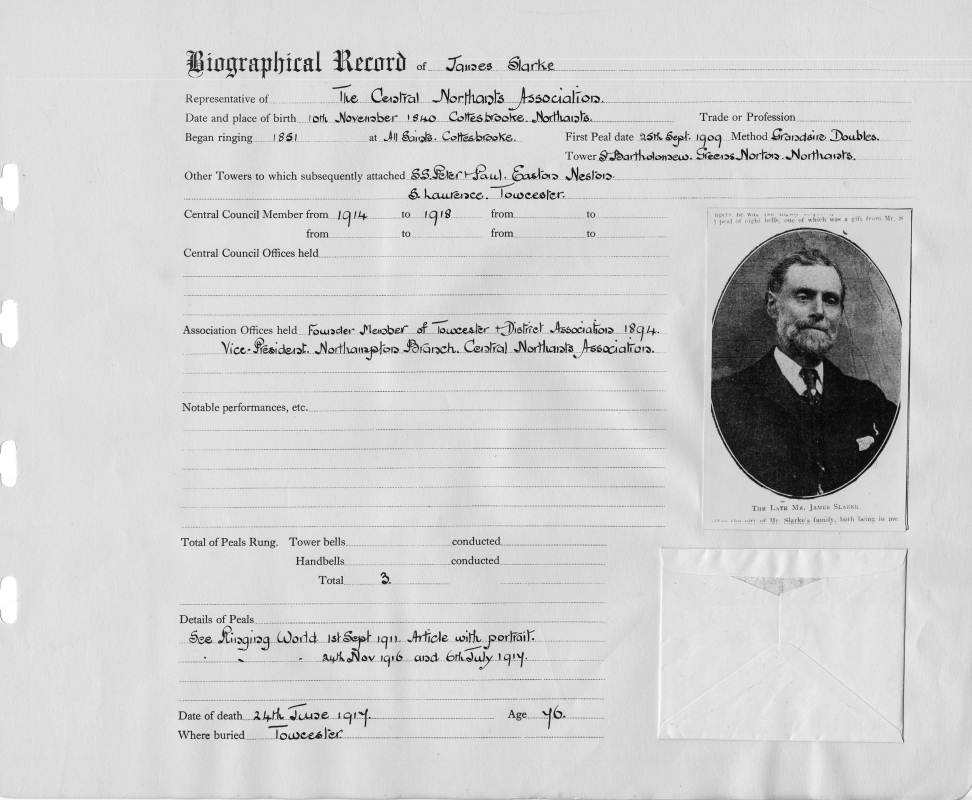 Biographical Record of James Slarke
Representative of The Central Northants Association.
Date and place of birth 10th November 1840 Cottesbrooke. Northants. Trade or Profession
Began ringing 1851 at All Saints. Cottesbrooke. First Peal date 25th Sept. 1909 Method Grandsire Doubles.
Tower S. Bartholomew. Greens Norton. Northants.
Other Towers to which subsequently attached S.S. Peter + Paul. Easton Neston.
S. Laurence. Towcester.
Central Council Member from 1914 to 1918 from to
from to from to
Central Council Offices held
Association Offices held Founder Member of Towcester + District Association 1894.
Vice-President. Northampton Branch. Central Northants Association.
Notable performances, etc.
l peal of eight bells, one of which was a gift from Mr. S
The Late Mr. James Slarke.
the gift of Mr. Slarke's family, both being in me
Total of Peals Rung. Tower bells conducted
Handbells conducted
Total 3.
Details of Peals
See Ringing World 1st Sept 1911. Article with portrait.
" " " 24th Nov 1916 and 6th July 1917.
Date of death 24th June 1917. Age 76.
Where buried Towcester.